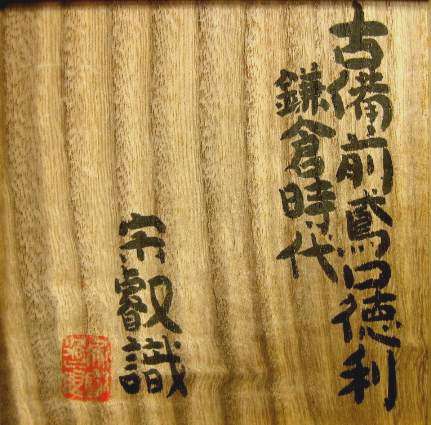 古備前鳶口徳利
鎌倉時代
宗叡識